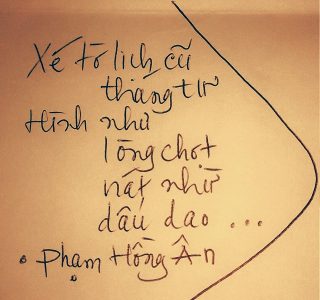 Xé tờ lịch cũ
tháng tư
Hình như
lòng chợt
nát như
dấu dao ...
• Phạm Hồng Ân